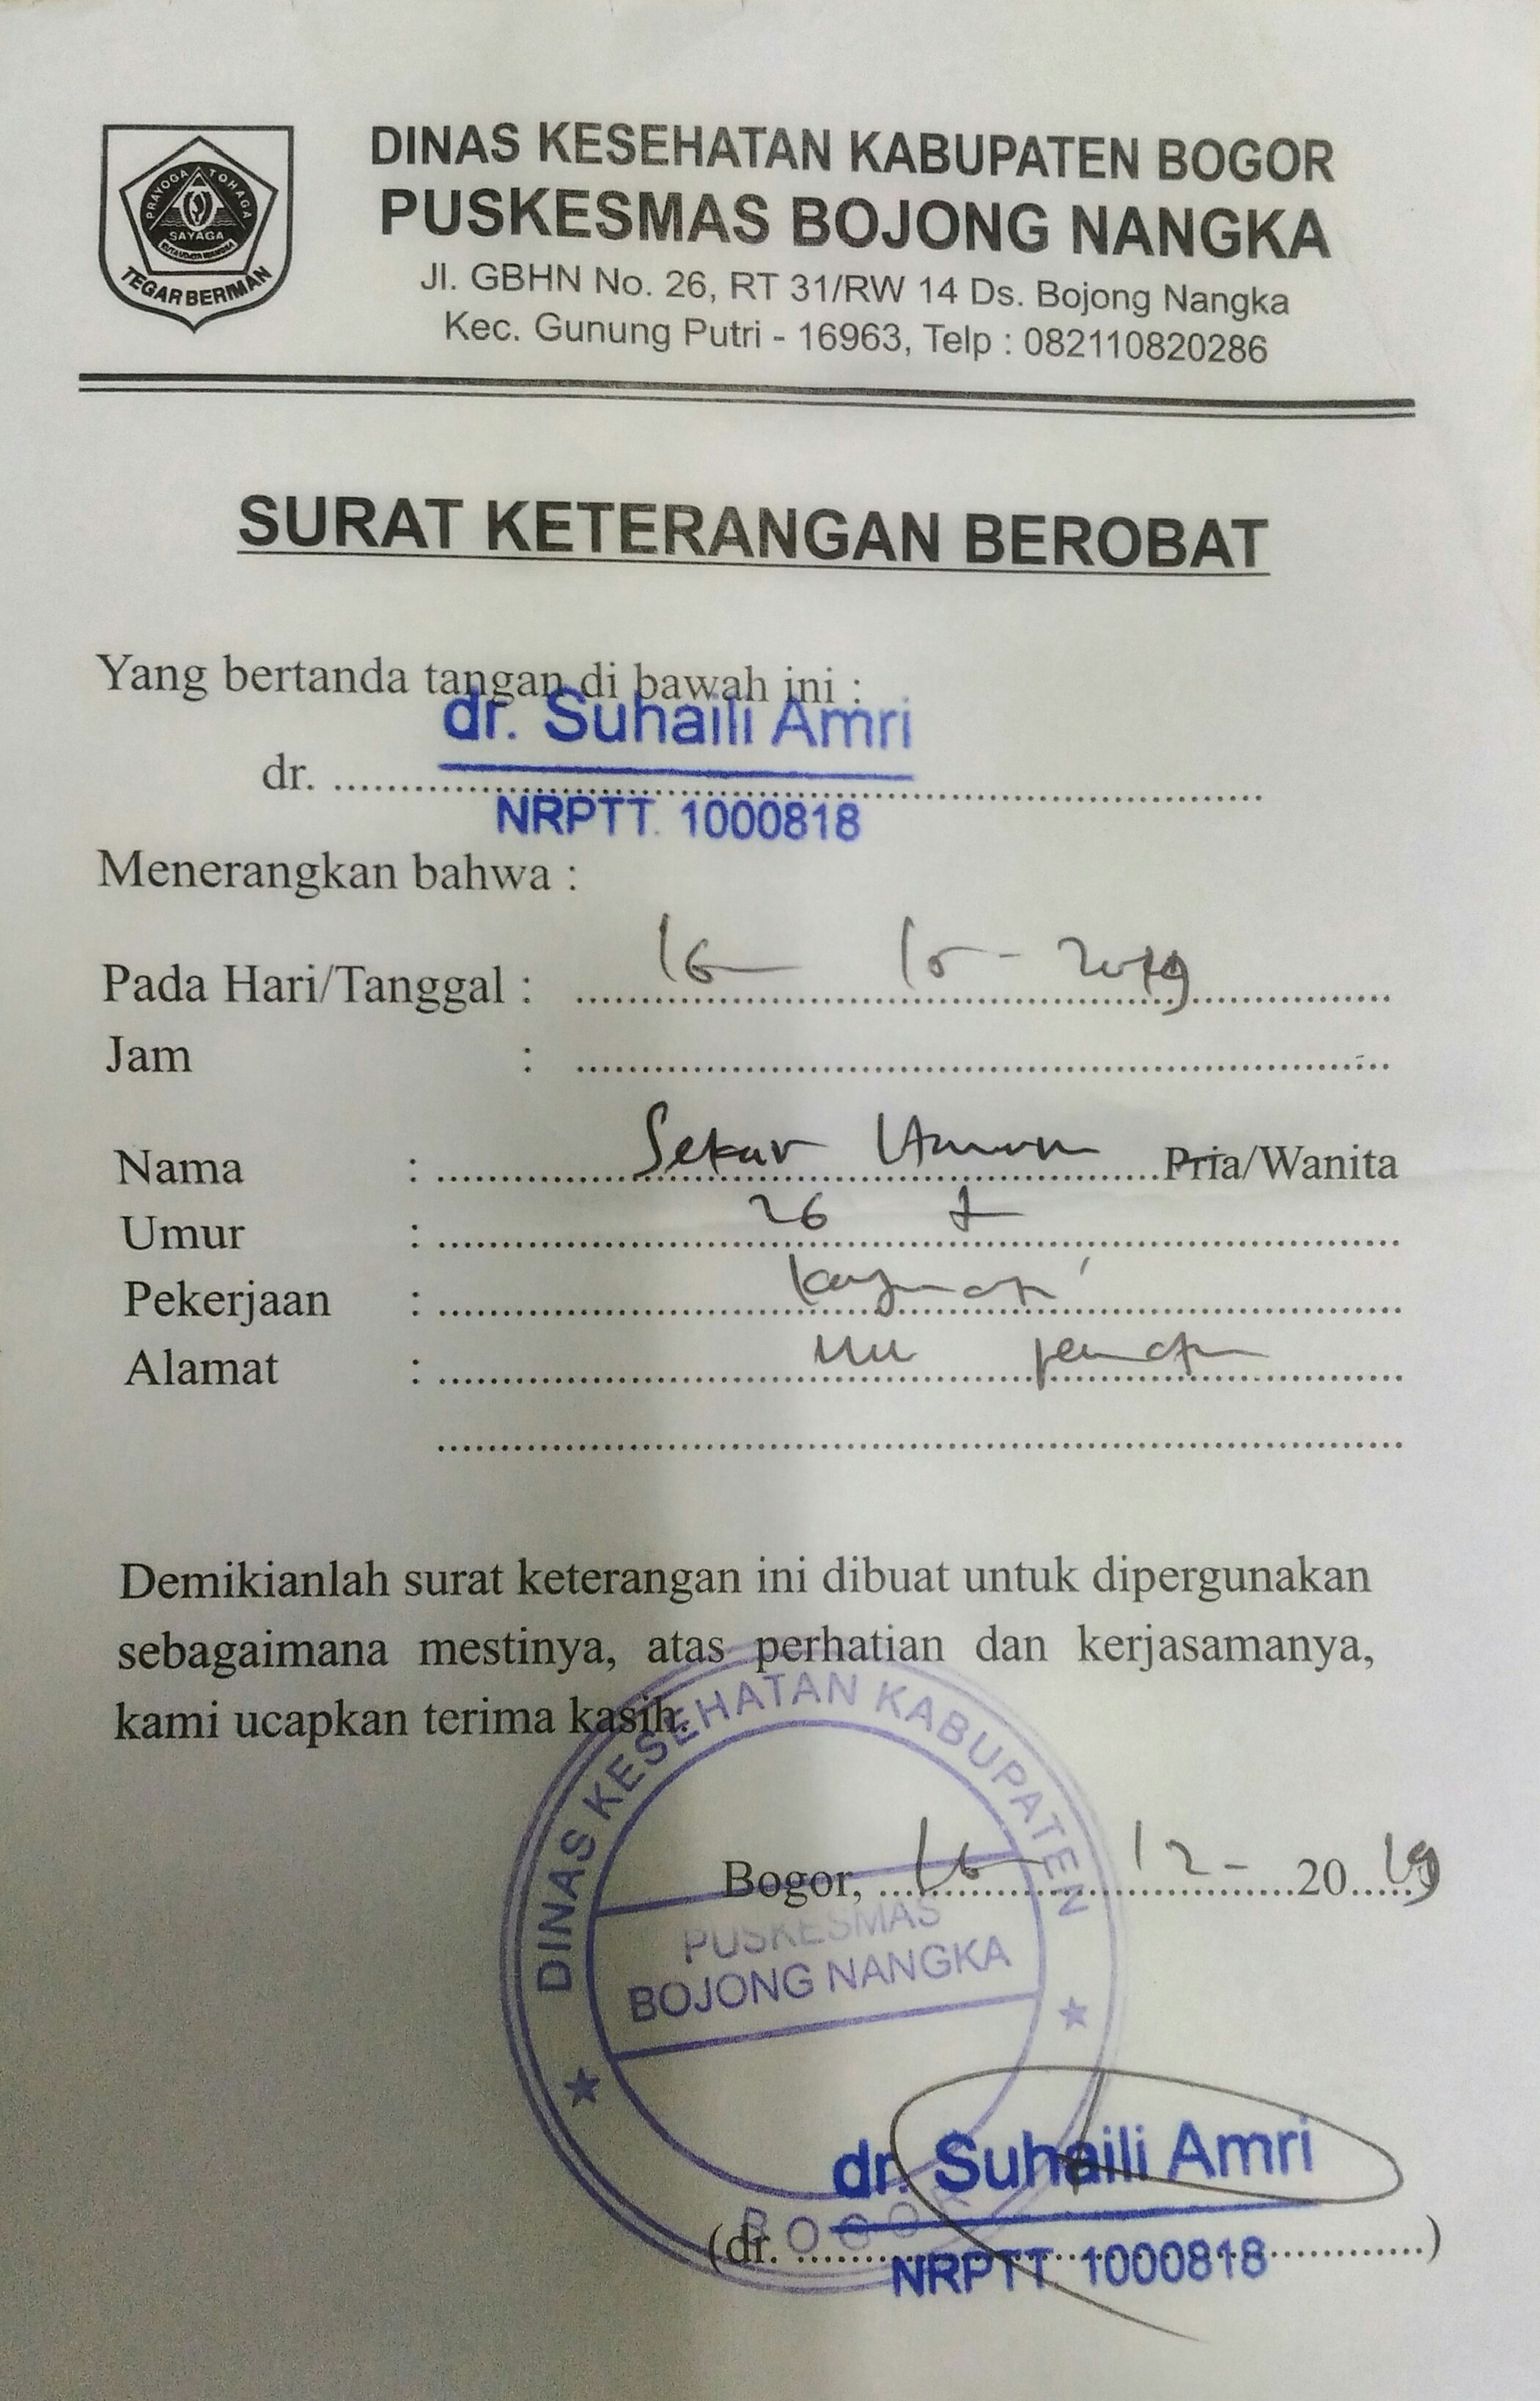 PRAYOGA TOHAGA
SAYAGA
TEGAR BERIMAN
DINAS KESEHATAN KABUPATEN BOGOR
PUSKESMAS BOJONG NANGKA
Jl. GBHN No. 26, RT 31/RW 14 Ds. Bojong Nangka
Kec. Gunung Putri - 16963, Telp : 082110820286
SURAT KETERANGAN BEROBAT
Yang bertanda tangan di bawah ini :
dr. Suhaili Amri
dr. ........................................
NRPTT. 1000818
Menerangkan bahwa :
Pada Hari/Tanggal : 16 - - 2019
Jam :
Nama : Sekar Pria/Wanita
Umur : 26
Pekerjaan :
Alamat :
Demikianlah surat keterangan ini dibuat untuk dipergunakan
sebagaimana mestinya, atas perhatian dan kerjasamanya,
kami ucapkan terima kasih.
DINAS KESEHATAN KABUPATEN
Bogor, 16 - 12 - 20 19
PUSKESMAS
BOJONG NANGKA
dr. Suhaili Amri
BOGOR
(dr. ........................................)
NRPTT 1000818